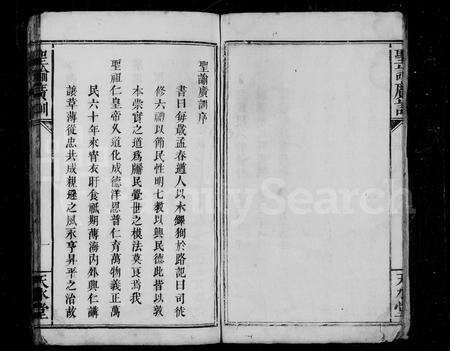 聖諭廣訓
聖諭廣訓序
書曰每歲孟春遒人以木鐸狥於路記曰司徒
修六禮以節民性明七教以興民德此皆以敦
本崇實之道爲牖民覺世之模法莫良焉我
聖祖仁皇帝久道化成德洋恩普仁育萬物義正萬
民六十年來宵衣旰食祗期薄海內外興仁講
讓革薄從忠共成親遜之風永享昇平之治故
聖諭廣訓
天水堂
天水堂
FamilySearch